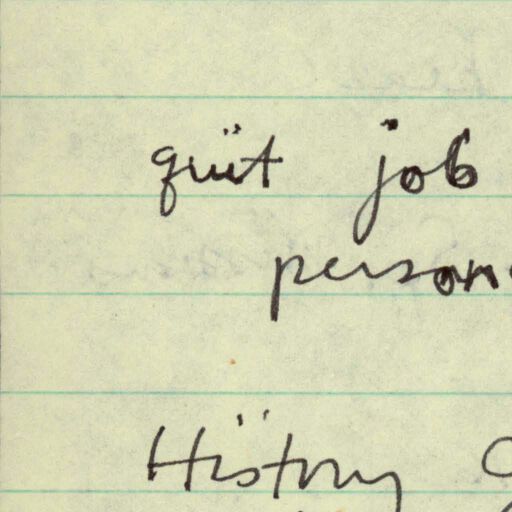 quit job
person
History